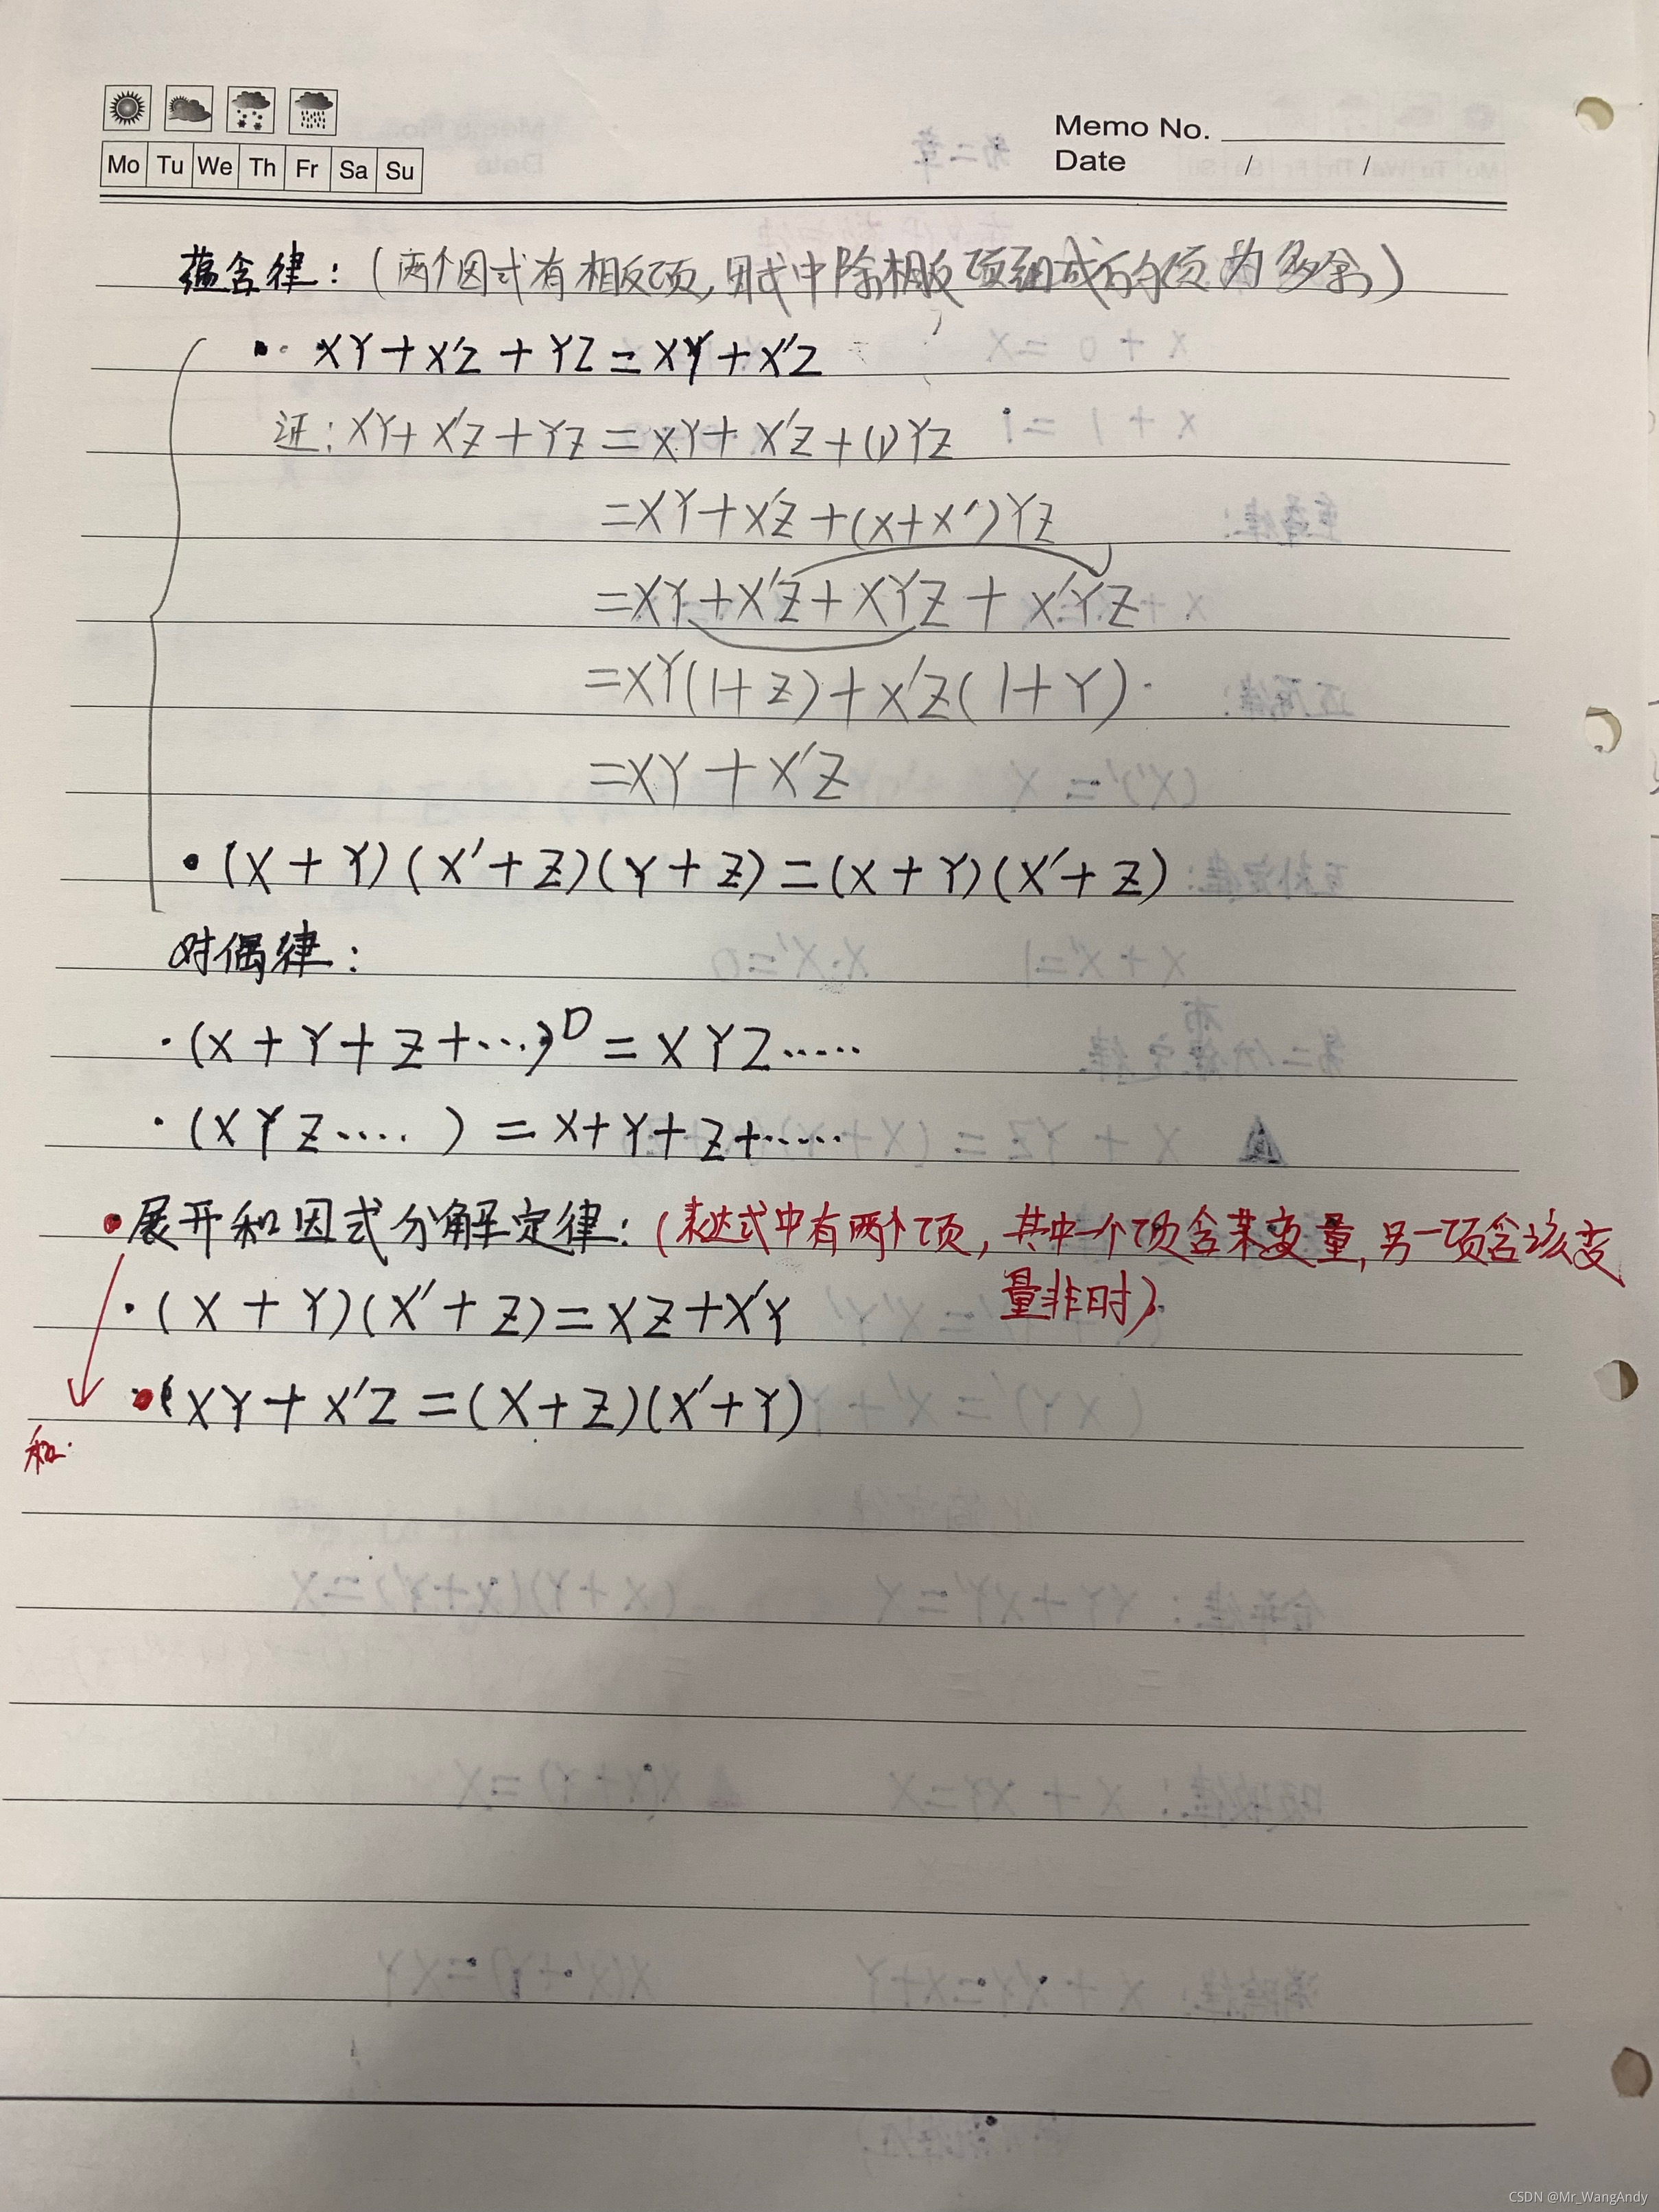 Memo No.
Mo Tu We Th Fr Sa Su
Date / /
蕴含律：(两个因式有相反项,因式中除相反项组成的项为多余)
· XY+X'Z+YZ=XY+X'Z
证: XY+X'Z+YZ=XY+X'Z+(1)YZ
=XY+X'Z+(X+X')YZ
=XY+X'Z+XYZ+X'YZ
=XY(1+Z)+X'Z(1+Y)
=XY+X'Z
·(X+Y)(X'+Z)(Y+Z)=(X+Y)(X'+Z)
对偶律:
·(X+Y+Z+...)ᴰ=XYZ.....
·(XYZ....)=X+Y+Z+......
·展开和因式分解定律:(表达式中有两个项,其中一个项含某变量,另一项含该变
量非时)
·(X+Y)(X'+Z)=XZ+X'Y
·(XY+X'Z=(X+Z)(X'+Y)
和
CSDN @Mr_WangAndy